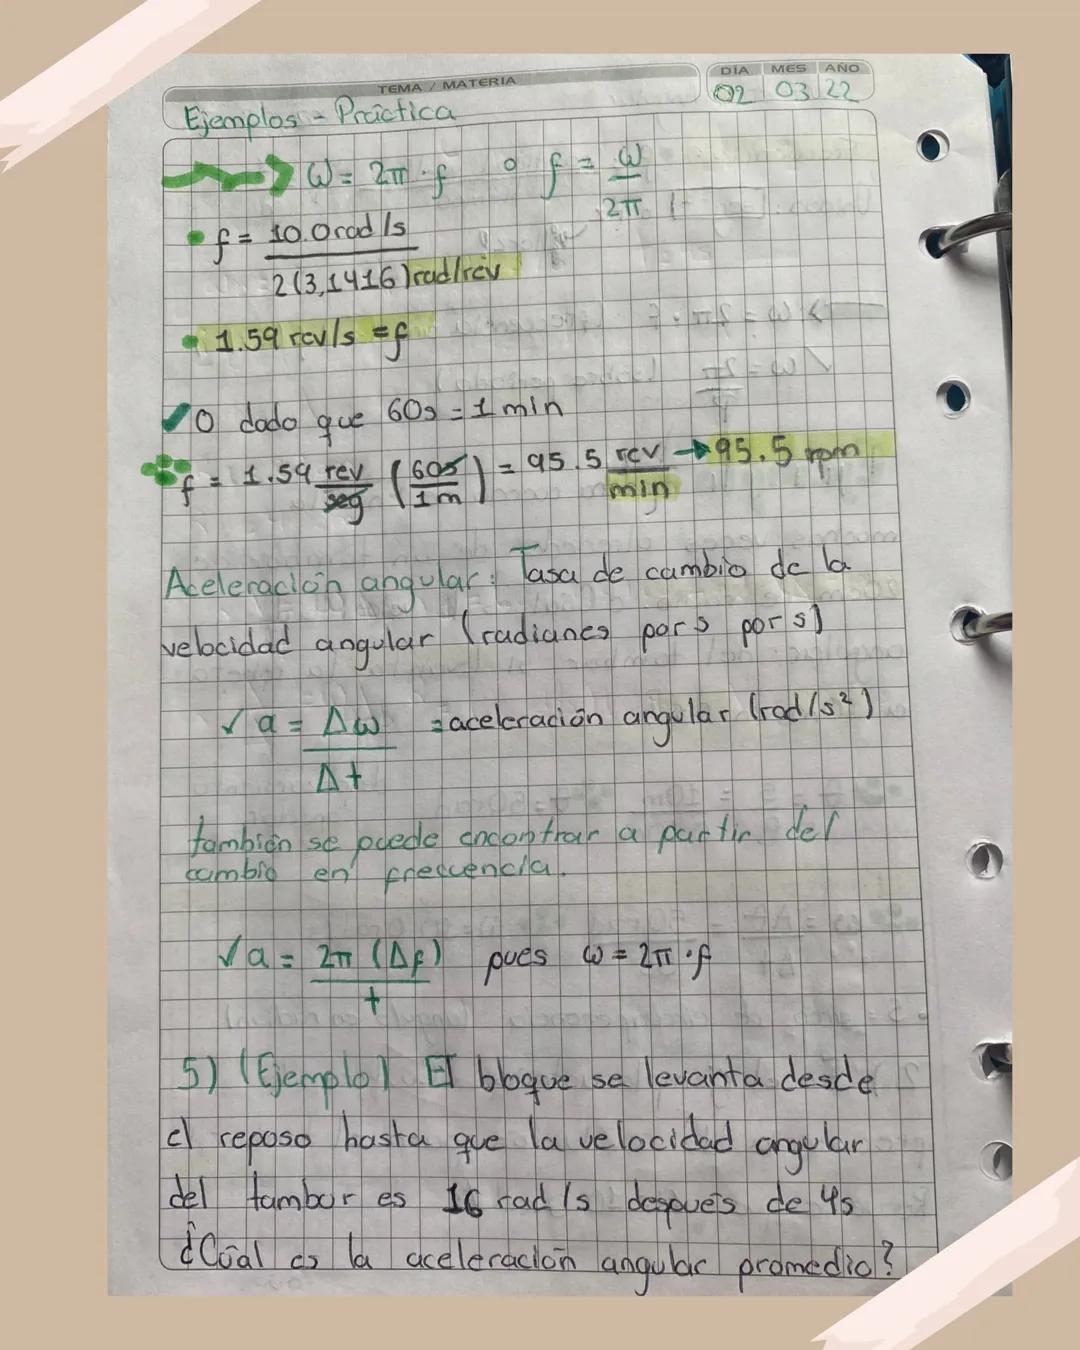 TEMA / MATERIA
DIA MES AÑO
02 03 22
Ejemplos - Práctica
ω = 2π · f o f = ω / 2π
f = 10.0 rad/s / 2(3,1416) rad/rev
1.59 rev/s = f
O dado que 60s = 1 min
f = 1.59 rev/seg (60s/1m) = 95.5 rev/min → 95.5 rpm
Aceleración angular: Tasa de cambio de la
velocidad angular (radianes por s por s)
✓ a = Δω / Δt = aceleración angular (rad/s²)
también se puede encontrar a partir del
cambio en frecuencia.
✓ a = 2π (Δf) / t pues ω = 2π · f
5) (Ejemplo) El bloque se levanta desde
el reposo hasta que la velocidad angular
del tambor es 16 rad/s después de 4s
¿Cúal es la aceleración angular promedio?